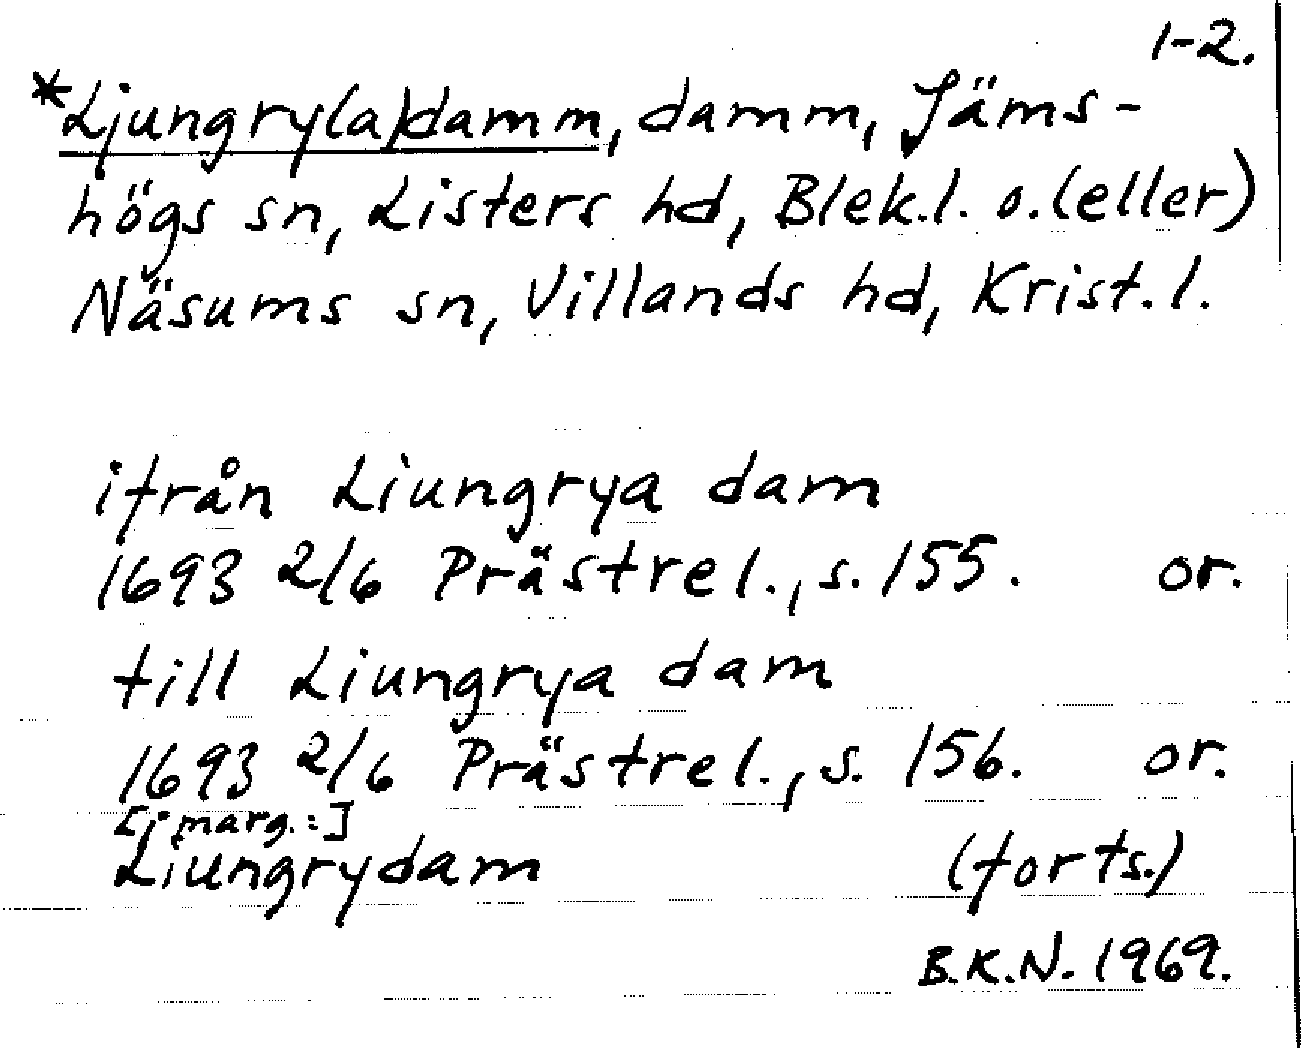 1-2.
*Ljungry(a)damm, damm, Jäms-
högs sn, Listers hd, Blek.l. o.(eller)
Näsums sn, Villands hd, Krist.l.
ifrån Liungrya dam
1693 2/6 Prästrel., s. 155. or.
till Liungrya dam
1693 2/6 Prästrel., s. 156. or.
[i marg.:]
Liungrydam (forts.)
B.K.N. 1969.